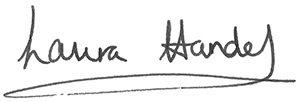 Laura Handes